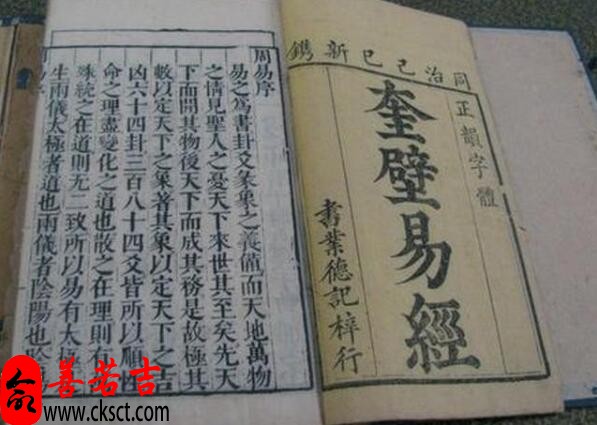 同治己巳新鐫
正韻字體
奎壁易經
書業德記梓行
周易序
易之為書卦爻彖象之義備而天地萬物
之情見聖人之憂天下來世其至矣先天
下而開其物後天下而成其務是故極其
數以定天下之象著其象以定天下之吉
凶六十四卦三百八十四爻皆所以順性
命之理盡變化之道也散之在理則有
殊統之在道則无二致所以易有太
生兩儀太極者道也兩儀者陰陽也
善若吉
www.cksct.com